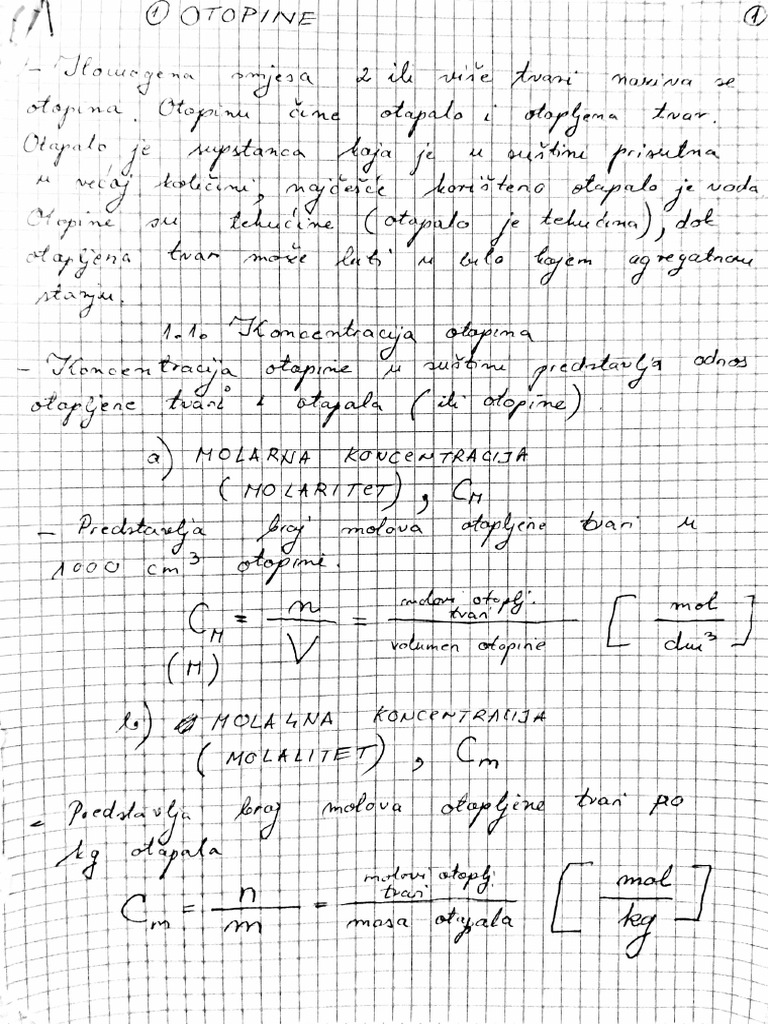 ① OTOPINE ①
- Homogena smjesa 2 ili više tvari naziva se
otopina. Otopinu čine otapalo i otopljena tvar.
Otapalo je supstanca koja je u suštini prisutna
u većoj količini, najčešće korišteno otapalo je voda.
Otopine su tekućine (otapalo je tekućina), dok
otopljena tvar može biti u bilo kojem agregatnom
stanju.
1.1. Koncentracija otopina
- Koncentracija otopine u suštini predstavlja odnos
otopljene tvari i otapala (ili otopine).
a) MOLARNA KONCENTRACIJA
(MOLARITET), CM
- Predstavlja broj molova otopljene tvari u
1000 cm³ otopine.
CM = n / V = molovi otoplj. tvari / volumen otopine [mol / dm³]
(M)
b) MOLALNA KONCENTRACIJA
(MOLALITET), Cm
- Predstavlja broj molova otopljene tvari po
kg otapala
Cm = n / m = molovi otoplj. tvari / masa otapala [mol / kg]